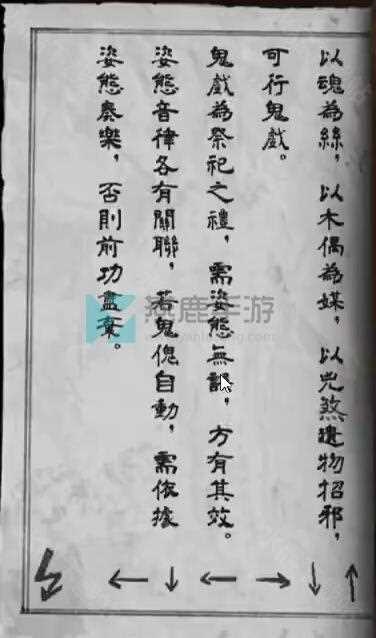 以魂為絲，以木偶為媒，以兇煞遺物招邪，
可行鬼戲。
鬼戲為祭祀之禮，需姿態無誤，方有其效。
姿態音律各有關聯，若鬼傀自動，需依據
姿態奏樂，否則前功盡棄。
↑↓→←↓←